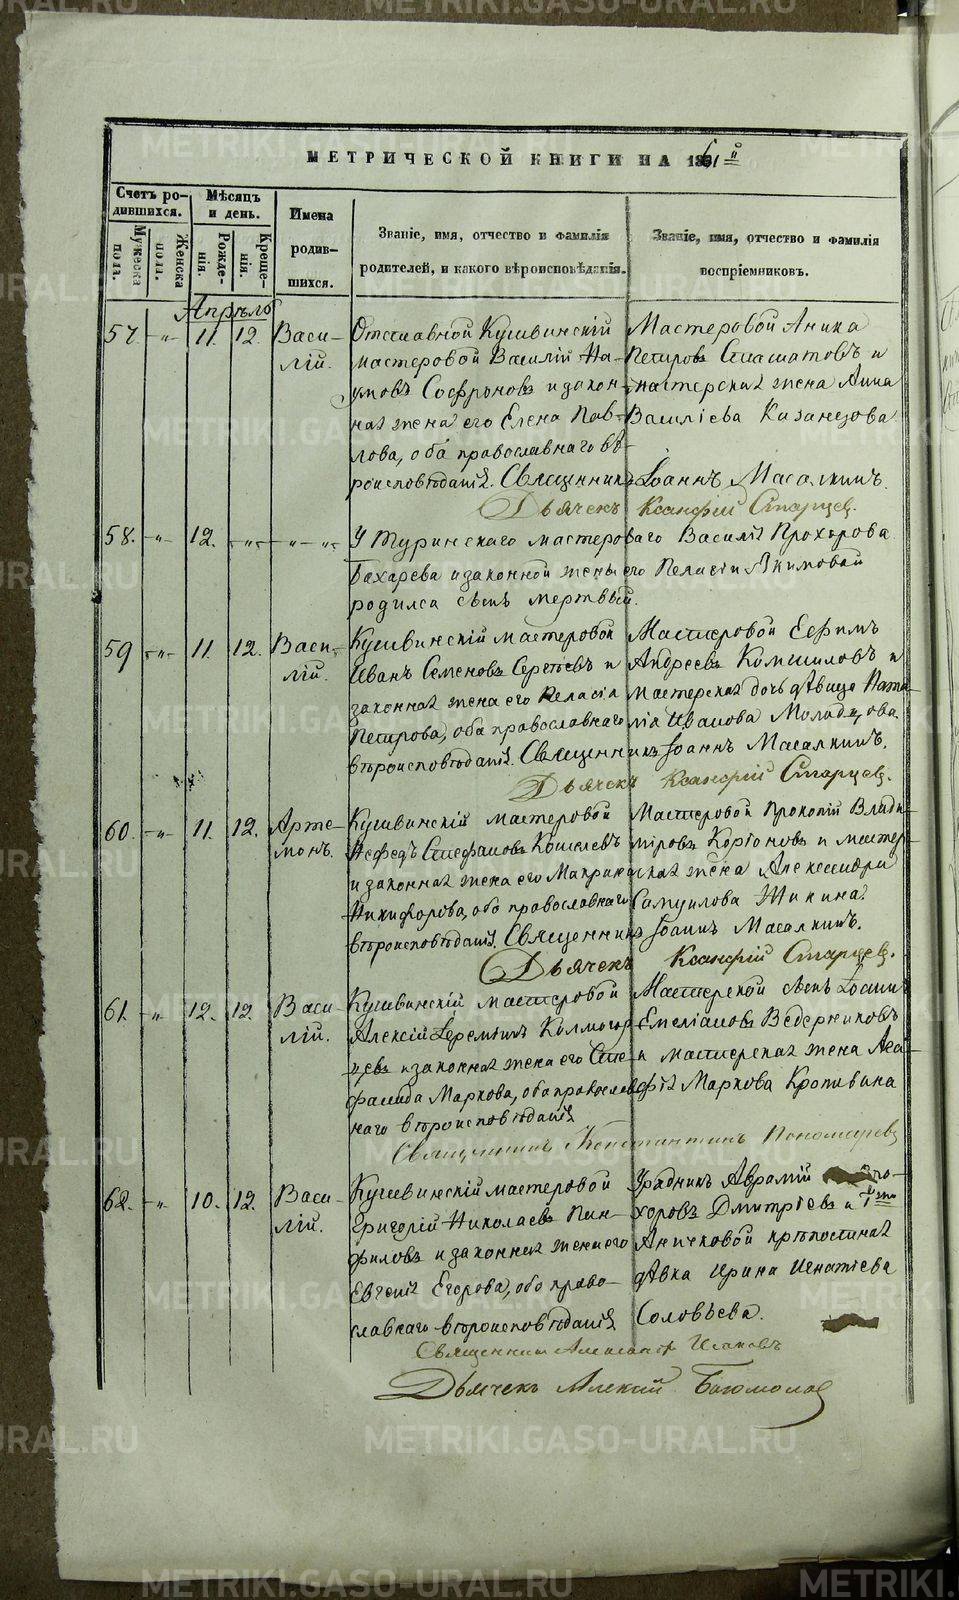 МЕТРИЧЕСКОЙ КНИГИ НА 1861й
Счетъ ро-
дившихся.
Мѣсяцъ
и день.
Имена
родив-
шихся.
Званіе, имя, отчество и фамилія
родителей, и какого вѣроисповѣданія.
Званіе, имя, отчество и фамилія
воспріемниковъ.
Мужеска
пола.
Женска
пола.
Рожде-
нія.
Креще-
нія.
Апрѣль
57 -"- 11. 12. Васи-
лій.
Отставной Кушвинскій
мастеровой Василій На-
умовъ Софроновъ и закон-
ная жена его Елена Пав-
лова, оба православнаго вѣ-
роисповѣданія.
Мастеровой Аника
Петровъ и
мастерская жена Анна
Василіева Казанцова
Священникъ Іоаннъ Масалкинъ.
Дьячекъ Ксанфій Старцевъ.
58. -"- 12. -"- -"- У Туринскаго мастероваго Василія Прохорова
Бахарева и законной жены его Пелагіи Якимовой
родился сынъ мертвый.
59 -"- 11. 12. Васи-
лій.
Кушвинскій мастеровой
Иванъ Семеновъ Сергѣевъ и
законная жена его Пелагія
Петрова, оба православнаго
вѣроисповѣданія.
Мастеровой Ефимъ
Андреевъ и
мастерская дочь дѣвица Ната-
лія Иванова
Священникъ Іоаннъ Масалкинъ.
Дьячекъ Ксанфій Старцевъ.
60. -"- 11. 12. Арте-
монъ.
Кушвинскій мастеровой
Нефедъ Стефановъ Кошелевъ
и законная жена его Макрина
Никифорова, оба православнаго
вѣроисповѣданія.
Мастеровой Прокопій Влади-
міровъ и мастер-
ская жена Александра
Самуилова
Священникъ Іоаннъ Масалкинъ.
Дьячекъ Ксанфій Старцевъ.
61. -"- 12. 12. Васи-
лій.
Кушвинскій мастеровой
Алексій Іереміинъ Колмогор-
цевъ и законная жена его Сте-
фанида Маркова, оба православ-
наго вѣроисповѣданія
Мастерской сынъ Іоаннъ
Емеліановъ Ведерниковъ
и мастерская жена Ага-
фія Маркова Кропивина
Священникъ Константинъ Пономаревъ
62. -"- 10. 12. Васи-
лій.
Кушвинскій мастеровой
Григорій Николаевъ Пан-
филовъ и законная жена его
Евгенія Егорова, оба право-
славнаго вѣроисповѣданія
Урядникъ Аврамій Про-
хоровъ Дмитріевъ и Гжи
Аничковой крѣпостная
дѣвка Ирина Игнатіева
Соловьева.
Священникъ Александръ
Дьячекъ Алексій Богомолов
METRIKI.GASO-URAL.RU